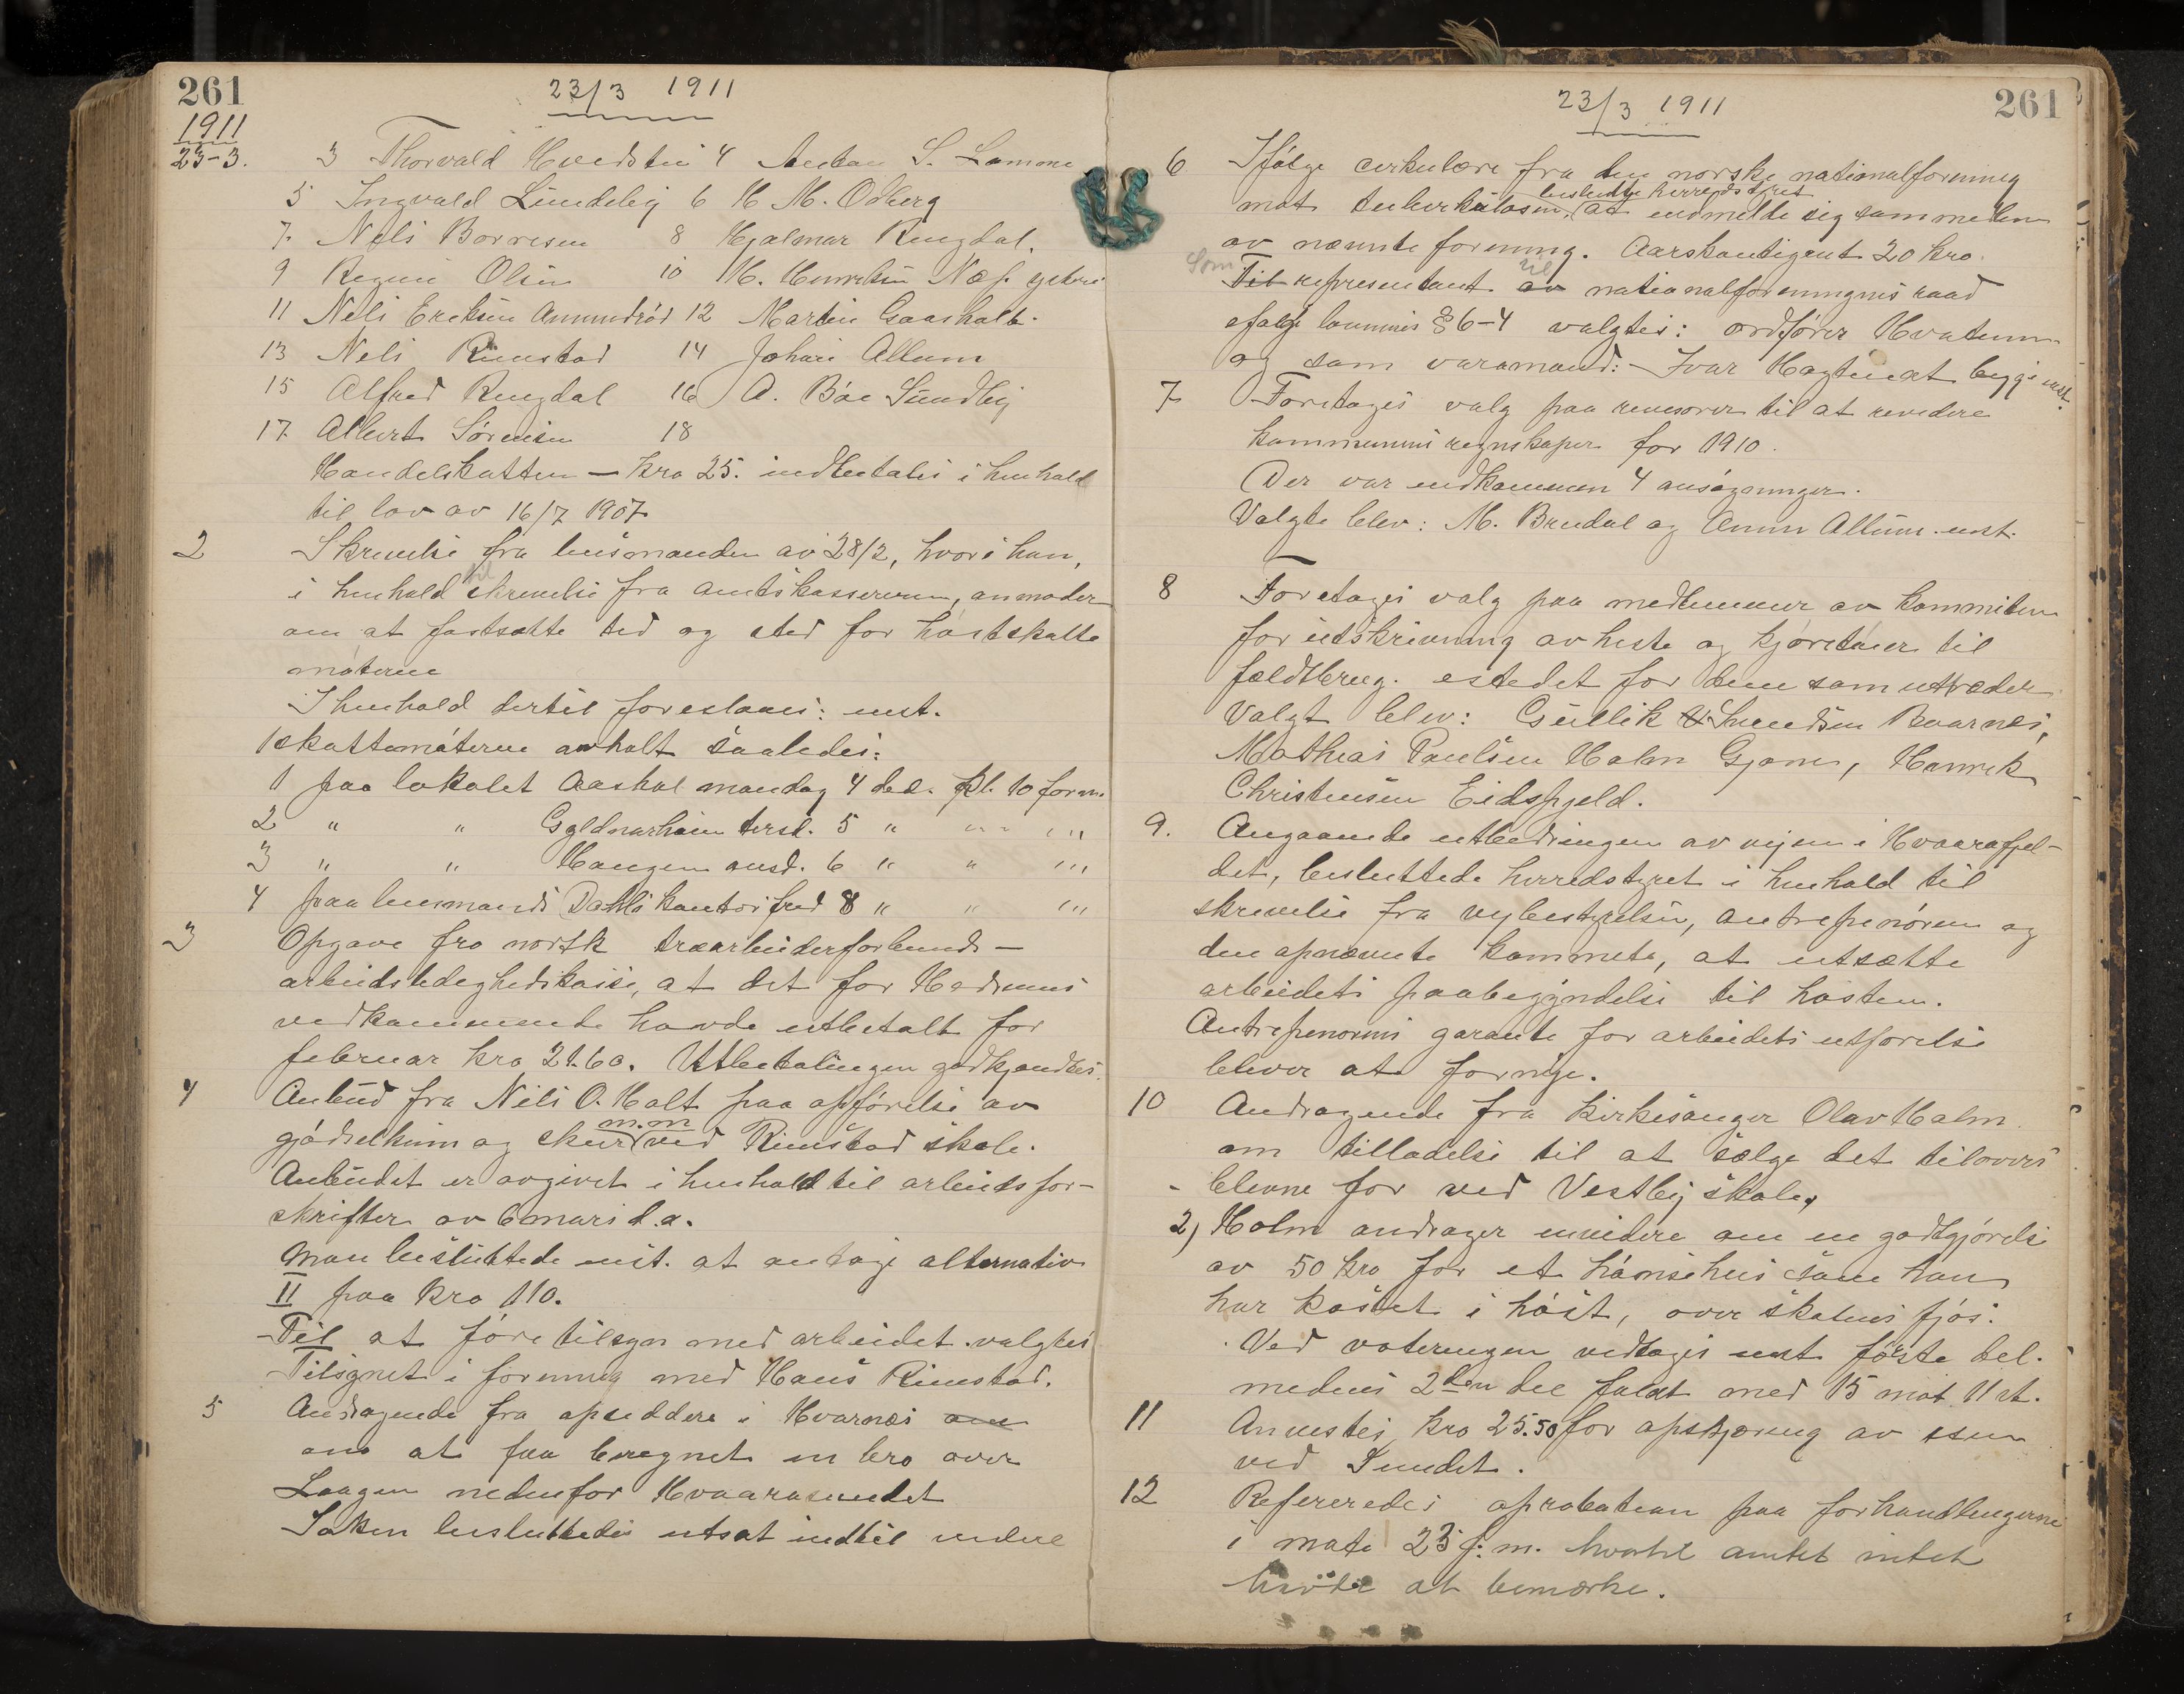 261
23/3 1911
1911
23-3.
3 Thorvald Hvedsten 4 Anton S. Lamone
5 Ingvald Lundeby 6 H M. Odberg
7 Nels Borresen 8 Hjalmar Ringdal.
9 Olsen 10 M. Henriksen
11 Nels Eriksen Amundrød 12 Martin Gaasholt.
13 Nels Rimstad 14 Johan Allum
15 Alfred Ringdal 16 A. Bøe Sundby
17 Albert Sørensen 18
Handelskatten – kro 25. indbetales i henhold
til lov av 16/7 1907
2 Skrivelse fra lensmanden av 28/2, hvori han,
i henhold til skrivelse fra amtskassereren, anmoder
om at fastsætte tid og sted for høstskatte
møterne
I henhold dertil foreslaaes: enst.
skattemøterne avholt saaledes:
1 paa lokalet Aashal mandag 4 dec. kl. 10 form.
2 " " Gyldnarheim tirsd. 5 " " "
3 " " Haugen onsd. 6 " " "
4 paa lensmands Dahls kontor fred 8 " " "
3 Opgave fra norsk træarbeiderforbunds –
arbeidsledighedskasse, at det for Hedrums
vedkommende havde utbetalt for
februar kro 21.60. Utbetalingen godkjendtes.
4 Anbud fra Nils O. Holt paa opførelse av
gjødselkum og skur m.m ved Rimstad skole.
Anbudet er avgivet i henhold til arbeidsfor-
skrifter av 6 mars d.a.
Man besluttede enst. at antage alternativ
II paa kro 110.
Til at føre tilsyn med arbeidet valgtes
Tilsynet i forening med Hans Rimstad.
5 Andragende fra opsiddere i Hvarnes om
om at faa beregnet en bro over
Laagen nedenfor Hvaarasundet
Saken besluttedes utsat indtil videre
23/3 1911
261
6 Ifølge cirkulære fra den norske nationalforening
besluttet herredsstyret
mot tuberkulosen, at indmelde sig som medlem
av nævnte forening. Aarskontigent 20 kro.
Som til
Til representant av nationalforeningens raad
ifølge lovenes § 6-4 valgtes: ordfører Hvatum
og som varamand: Ivar Hagtvedt begge enst.
7 Foretages valg paa revisorer til at revidere
kommunens regnskaper for 1910.
Der var indkommen 4 ansøgninger.
Valgte blev: M. Bredal og Anun Allum enst.
8 Foretages valg paa medlemmer av kommiteen
for utskrivning av heste og kjøretøier til
feldtbrug. istedet for dem som uttræder
Valgt blev: Gullik Simensen Baarnes,
Mathias Paulsen Holm Gjone, Henrik
Christensen Eidsfjeld.
9. Angaaende utbedringen av veien i Hvaarafjel-
det, besluttede herredstyret i henhold til
skrivelse fra veibestyrelsen, antreprenøren og
den opnævnte kommite, at utsætte
arbeidets paabegyndelse til høsten.
Antreprenørens garante for arbeidets utførelse
blever at fornye.
10 Andragende fra kirkesanger Olav Holm
om tilladelse til at sælge det tilovers
- blevne for ved Vestby skole,
2) Holm andrager videre om en godtgjørelse
av 50 kro for et hønsehus som han
har kostet i høst, over skolens fjøs.
Ved voteringen vedtages enst første del.
medens 2den del faldt med 15 mot 11 st.
11 Anvistes kro 25.50 for opskjæring av isen
ved Sundet.
12 Refereredes aprobation paa forhandlingerne
i møte 23 f.m. hvortil amtet intet
havde at bemærke.